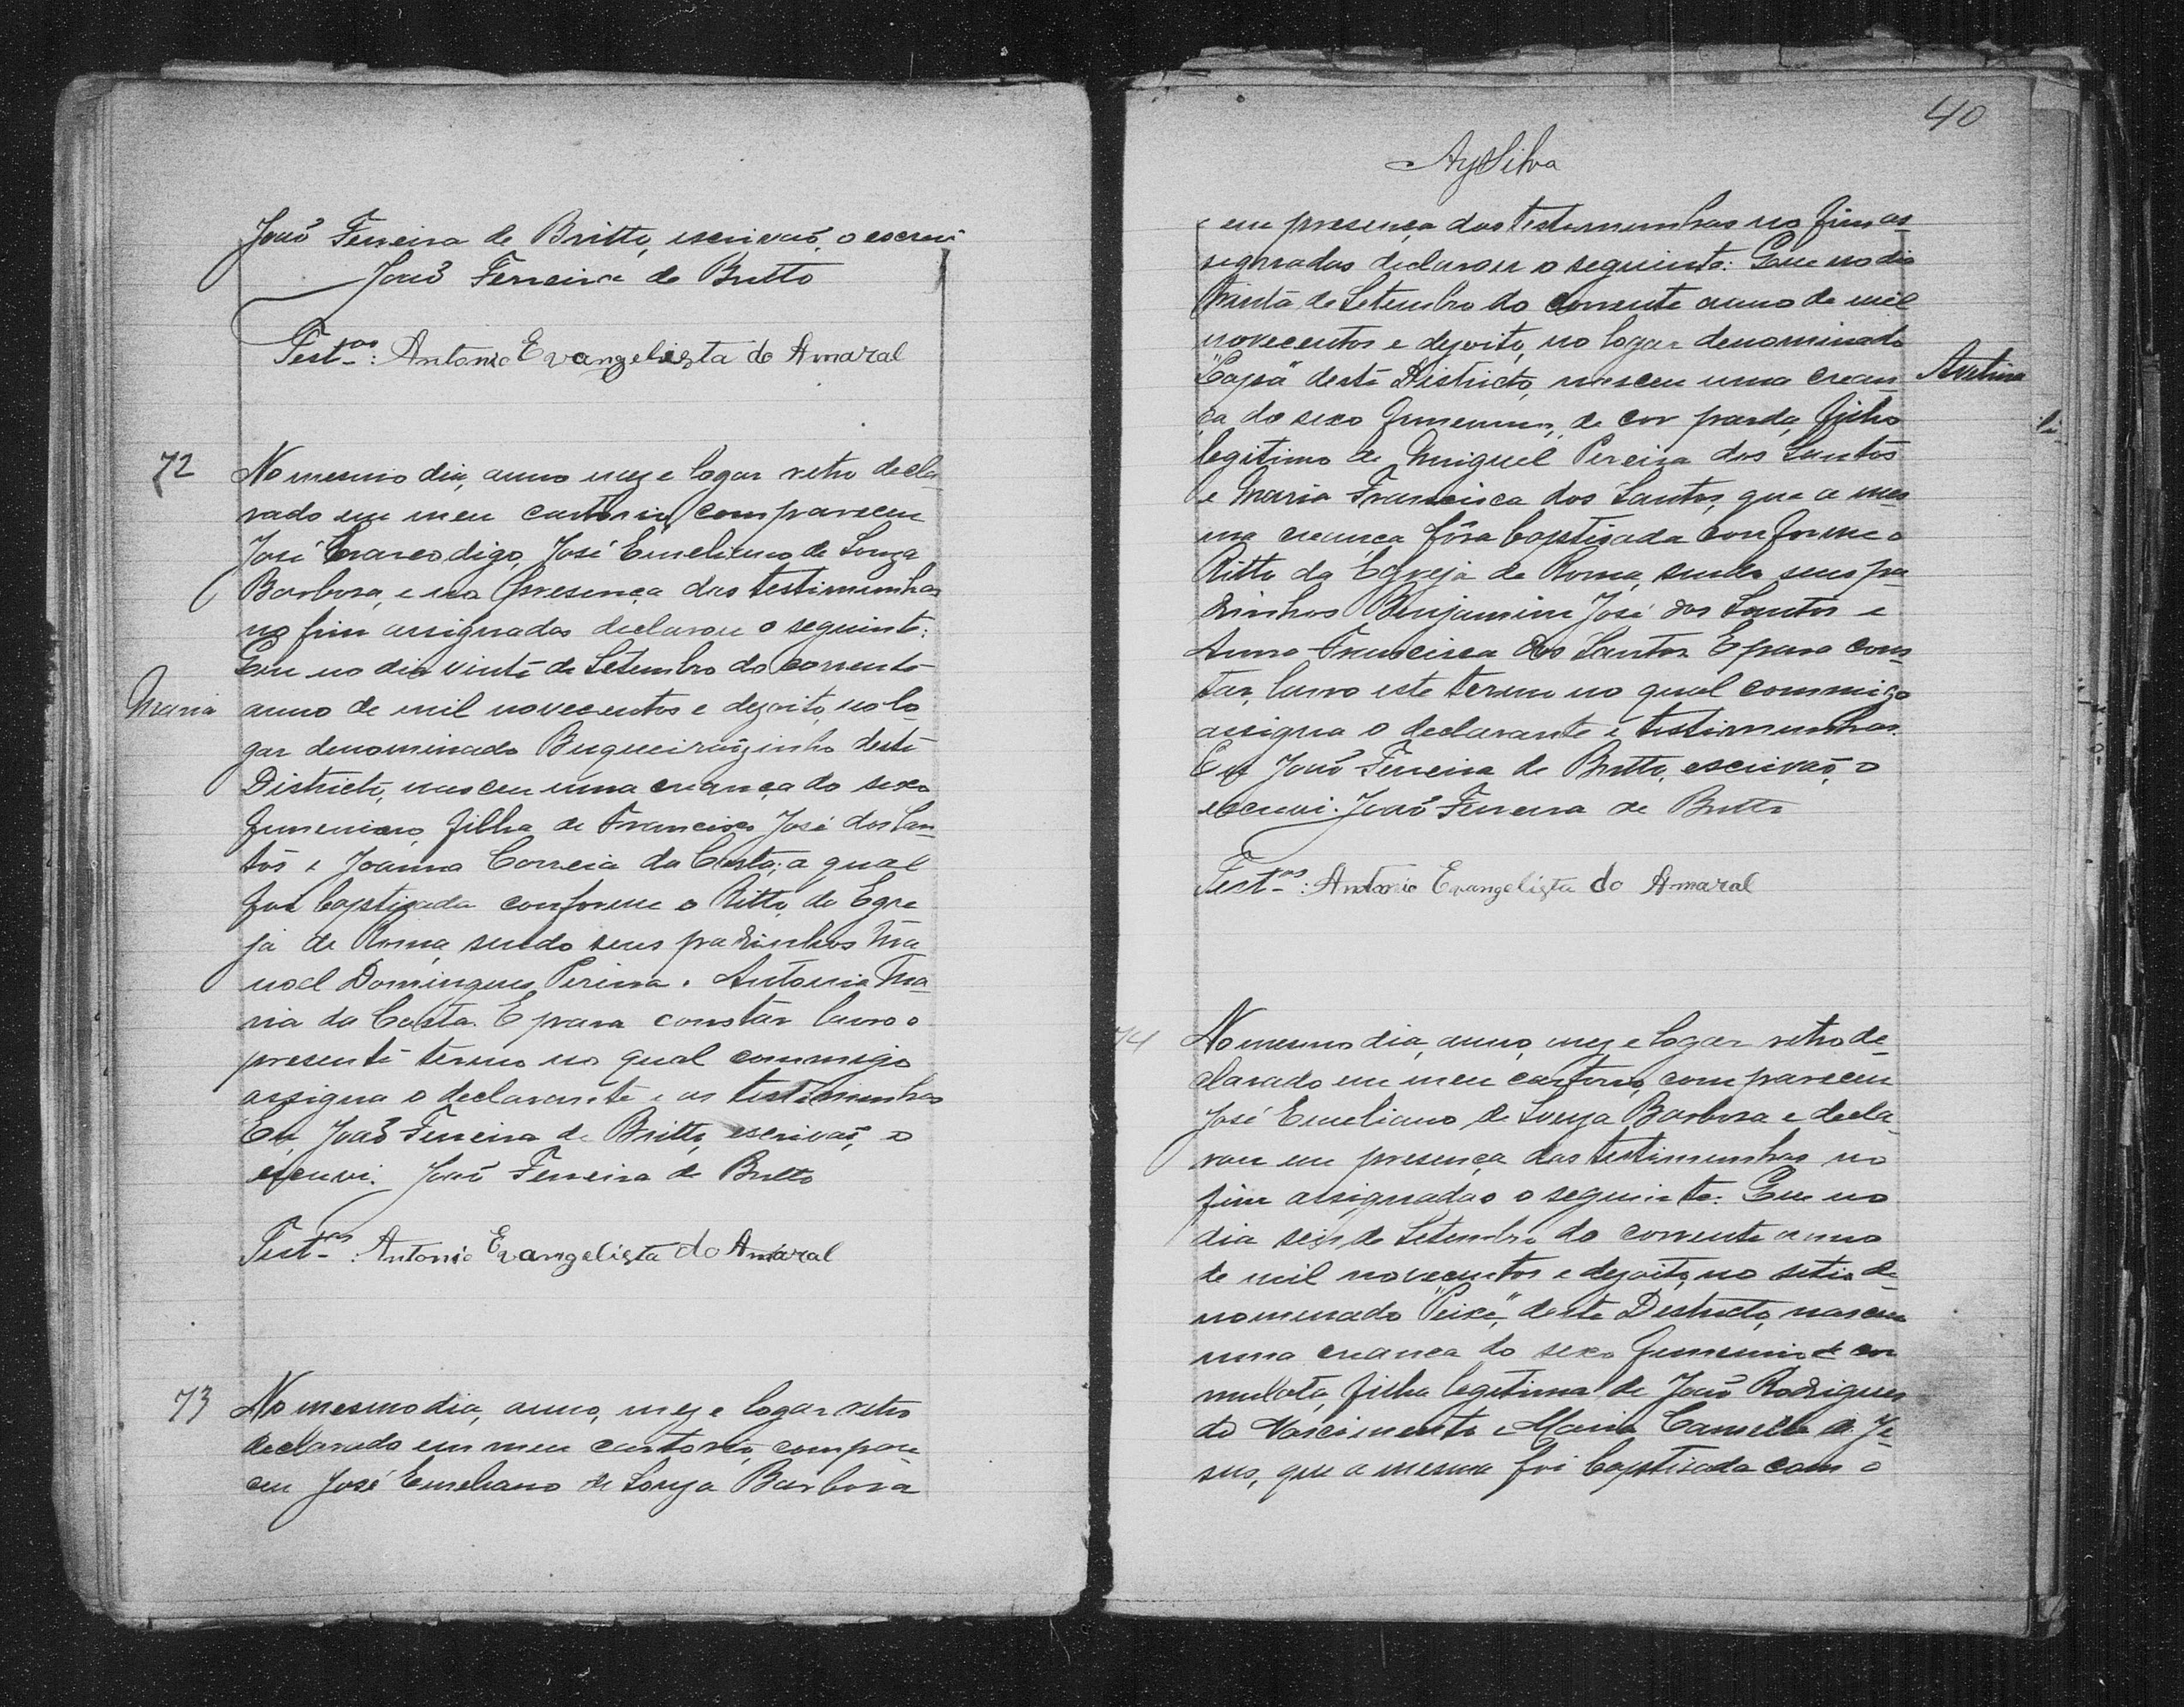 João Ferreira de Britto, escrivaõ, o escrevi
João Ferreira de Britto
Test.as: Antonio Evangelista do Amaral
72
No mesmo dia, anno mez e logar retro decla-
rado em meu cartorio, compareceu
José digo, José Emeliano de Souza
Barbosa, e na presença das testimunhas
no fim assignadas declarou o seguinte:
Que no dia vinte de Setembro do corrente
Maria
anno de mil novecentos e dezoito, no lo-
gar denominado deste
Districto, nasceu uma criança do sexo
femenino, filha de Francisco José dos San-
tos e Joanna Correia da Costa; a qual
foi baptizada conforme o Ritto da Egre
ja de Roma, sendo seus padrinhos Ma
noel Domingues Pereira e Antonia Ma-
ria da Costa. E para constar lavro o
presente termo no qual commigo
assigna o declarante e as testimunhas
Eu, João Ferreira de Britto, escrivaõ, o
escrevi. João Ferreira de Britto
Test.as: Antonio Evangelista do Amaral
73
No mesmo dia, anno, mez e logar retro
declarado em meu cartorio, compare-
ceu José Emeliano de Souza Barbosa
40
AySilva
em presença das testemunhas no fim as-
signadas declarou o seguinte: Que no dia
trinta de Setembro do corrente anno de mil
novecentos e dezoito, no logar denominado
deste Districto, nasceu uma crean-
ça do sexo femenino, de cor parda, filho
legitimo de Miguel Pereira dos Santos
e Maria Francisca dos Santos, que a mes
ma creança fôra baptisada conforme o
Ritto da Egreja de Roma, sendo seus pa
drinhos Benjamim José dos Santos e
Anna Francisca dos Santos. E para cons-
tar, lavro este termo no qual commigo
assigna o declarante e testimunhas.
Eu João Ferreira de Britto, escrivaõ, o
escrevi. João Ferreira de Britto
Test.as: Antonio Evangelista do Amaral
74
No mesmo dia, anno, mez e logar retro de-
clarado em meu cartorio, compareceu
José Emeliano de Souza Barbosa e decla-
rou em presença das testimunhas no
fim assignadas o seguinte: Que no
dia seis de Setembro do corrente anno
de mil novecentos e dezoito, no sitio de-
nominado "Peixe", deste Destricto, nasceu
uma creança do sexo femenino de cor
mulata, filha legitima de João Rodrigues
do Nascimento e Maria de Je-
sus, que a mesma foi baptisada com o